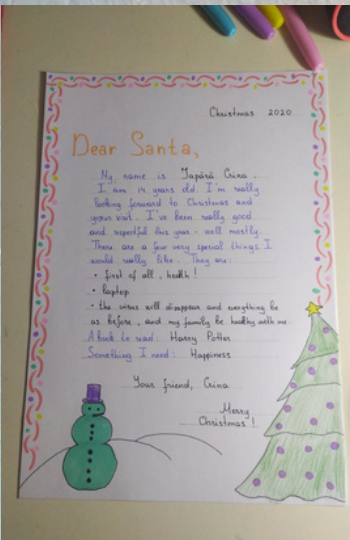 Christmas 2020
Dear Santa,
My name is Țapără Crina.
I am 14 years old. I'm really
looking forward to Christmas and
your visit. I've been really good
and respectful this year - well mostly.
There are a few very special things I
would really like. They are:
• first of all, health!
• laptop
• the virus will disappear and everything be
as before, and my family be healthy with me.
A book to read: Harry Potter
Something I need: Happiness
Your friend, Crina
Merry
Christmas!